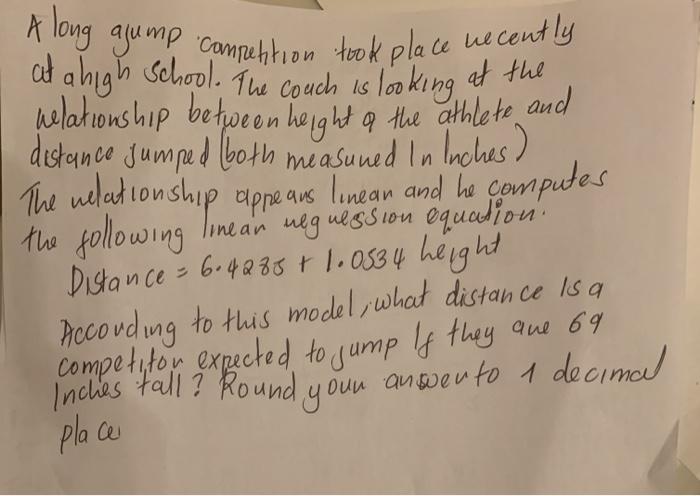 A long gjump competition took place recently
at a high school. The coach is looking at the
relationship between height of the athlete and
distance jumped (both measured In Inches)
The relationship appears linear and he computes
the following linear regression equation.
Distance = 6.4285 + 1.0534 height
According to this model, what distance Is a
competitor expected to jump If they are 69
Inches tall? Round your answer to 1 decimal
place